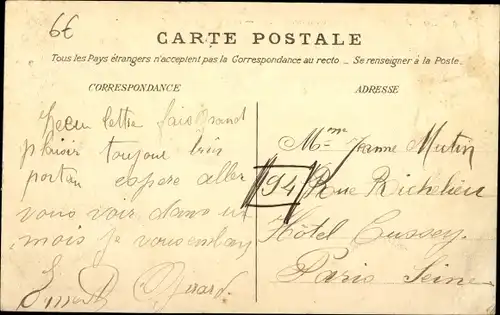 6€
CARTE POSTALE
Tous les Pays étrangers n'acceptent pas la Correspondance au recto. - Se renseigner à la Poste.
CORRESPONDANCE
ADRESSE
Recu lettre fais Grand
plaisir toujour très
portan espere aller
vous voir dans un
mois Je vous embras
Girard
Mme Jeanne Mutin
94 Rue Richelieu
Hôtel Cussey
Paris Seine